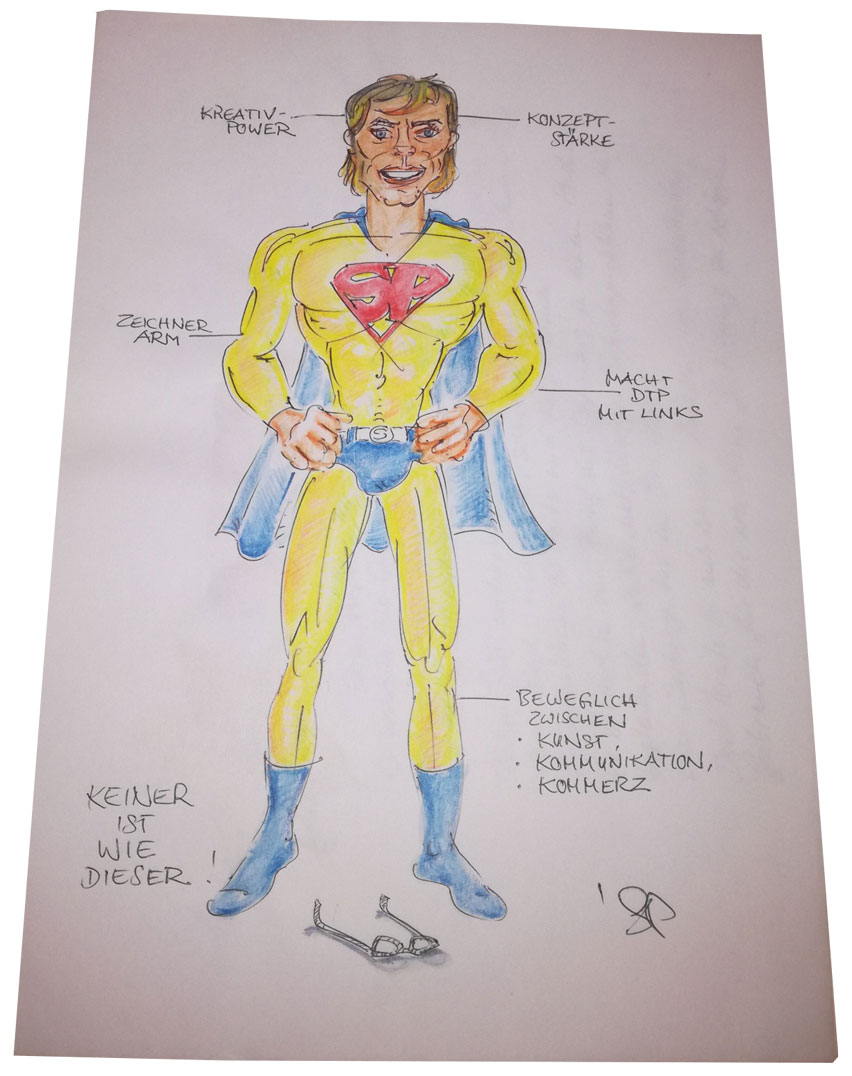 KREATIV-
POWER
KONZEPT-
STÄRKE
SP
ZEICHNER
ARM
MACHT
DTP
MIT LINKS
S
BEWEGLICH
ZWISCHEN
· KUNST,
· KOMMUNIKATION,
· KOMMERZ
KEINER
IST
WIE
DIESER!
'SP